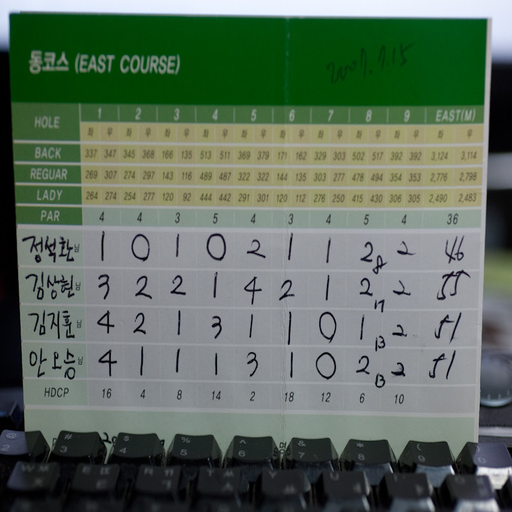 동코스 (EAST COURSE)
2007.7.15
HOLE 1 2 3 4 5 6 7 8 9 EAST(M)
좌 우 좌 우 좌 우 좌 우 좌 우 좌 우 좌 우 좌 우 좌 우 좌 우
BACK 337 347 345 368 166 135 513 511 369 379 171 162 329 303 502 517 392 392 3,124 3,114
REGUAR 269 307 274 297 143 116 489 487 322 322 144 135 303 277 478 494 354 353 2,776 2,798
LADY 264 274 254 277 120 92 444 442 291 301 120 112 276 250 415 430 306 305 2,490 2,483
PAR 4 4 3 5 4 3 4 5 4 36
정석환님 1 0 1 0 2 1 1 2 2 46
김상현님 3 2 2 1 4 2 1 2 17 2 55
김지훈님 4 2 1 3 1 1 0 1 13 2 51
안오승님 4 1 1 1 3 1 0 2 13 2 51
HDCP 16 4 8 14 2 18 12 6 10